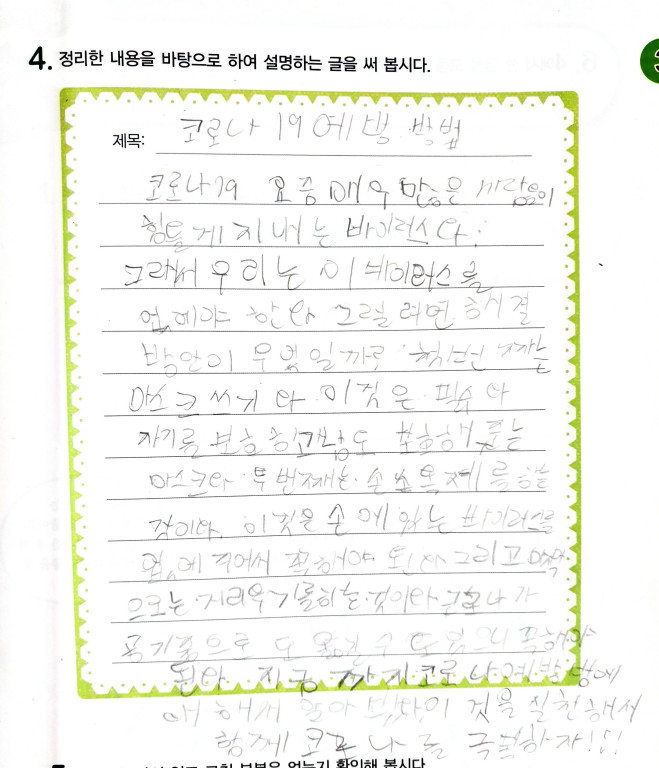 4. 정리한 내용을 바탕으로 하여 설명하는 글을 써 봅시다.
제목: 코로나 19 예방 방법
코로나19 요즘 매우 많은 사람들이
힘들게 지내는 바이러스다.
그래서 우리는 이 바이러스를
없에야 한다 그럴려면 해결
방안이 무엇일까? 첫번째는
마스크 쓰기 다 이것은 필수 다
자기를 보호 하고 남도 보호해 주는
마스크다. 두번째는 손 소독제를 하는
것이다. 이것은 손에 있는 바이러스를
없에 주어서 꼭해야 된다 그리고 마지막
으로는 거리두기를하는 것이다 코로나가
공기중으로 도 옮길수 도 있으니 꼭해야
된다 지금 까지 코로나예방 법에
대해서 알아 보았다 이 것을 실천해서
함께 코로나를 극복하자!!